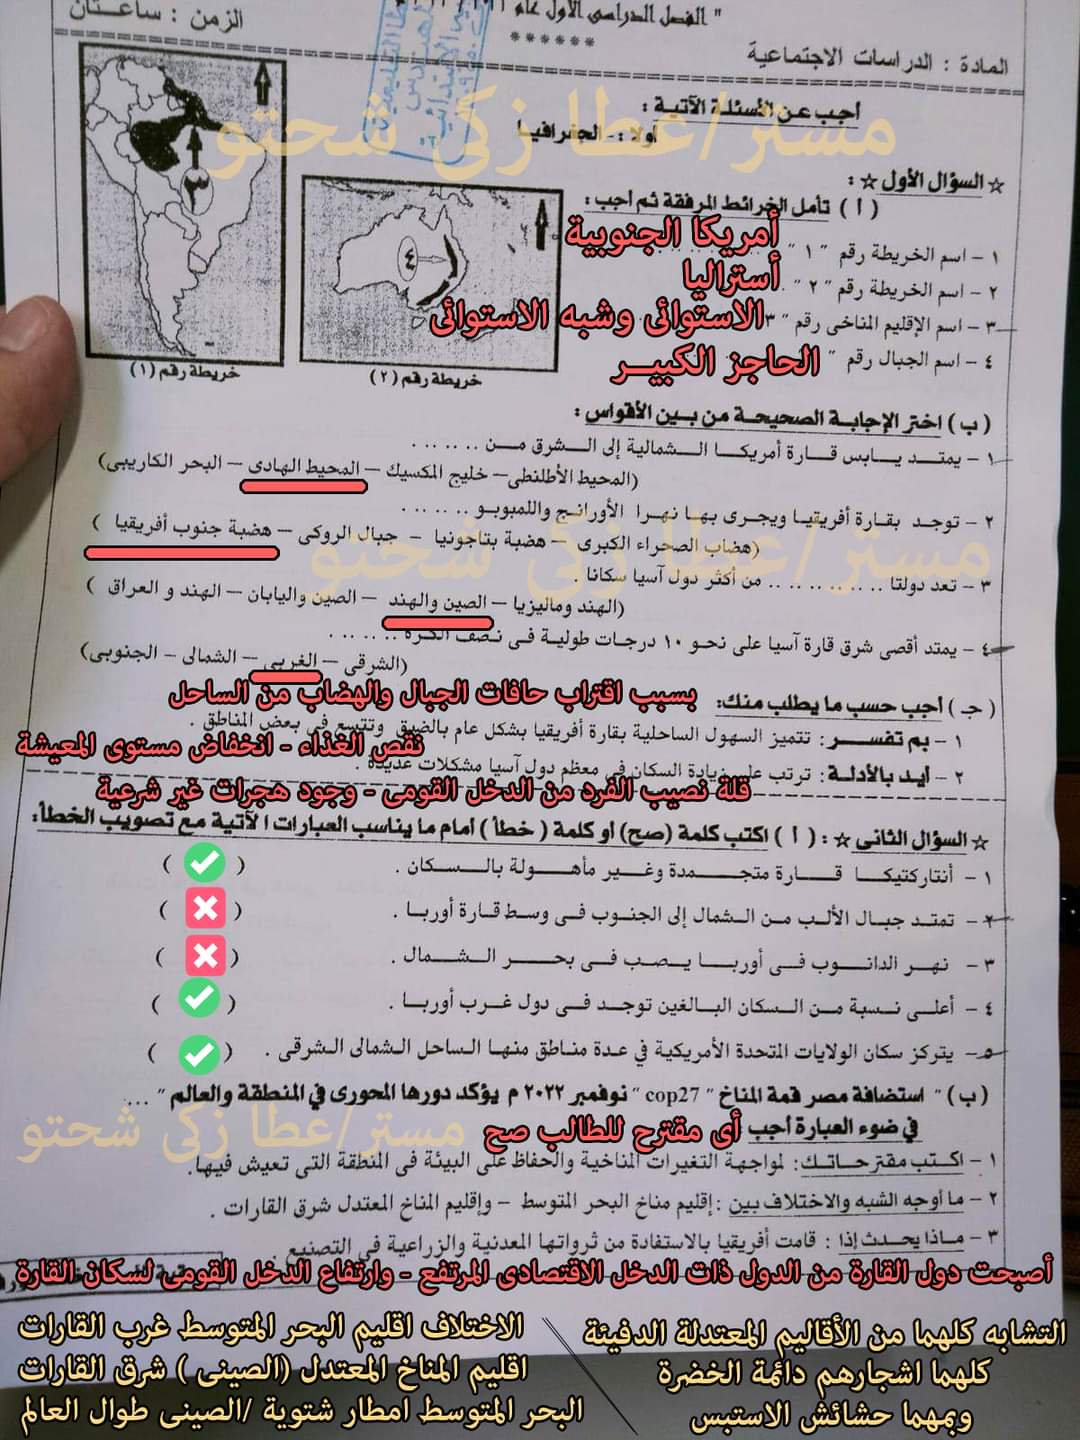 " الفصل الدراسى الأول عام
الزمن : ساعـتـان
******
المادة : الدراسات الاجتماعية
أجب عن الأسئلة الآتية :
أولا : - الجغرافيا
مستر/عطا زكى شحتو
☆ السؤال الأول ☆ :
( أ ) تأمل الخرائط المرفقة ثم أجب :
١ - اسم الخريطة رقم " ١ " أمريكا الجنوبية
٢ - اسم الخريطة رقم " ٢ " أستراليا
٣ - اسم الإقليم المناخى رقم " ٣ الاستوائى وشبه الاستوائى
٤ - اسم الجبال رقم " الحاجز الكبيــر
٣
٤
خريطة رقم (١)
خريطة رقم (٢)
( ب ) اختر الإجابة الصحيحة من بين الأقواس :
١ - يمتـد يـابس قـارة أمريكـا الـشمالية إلى الـشرق مـن .. .. .. .
(المحيط الأطلنطى – خليج المكسيك – المحيط الهادى – البحر الكاريبى)
٢ - توجـد بقـارة أفريقيـا ويجـرى بهـا نهـرا الأورانـج واللمبوبـو .. .. .. .
(هضاب الصحراء الكبرى – هضبة بتاجونيا – جبال الروكى – هضبة جنوب أفريقيا )
مستر/عطا زكى شحتو
٣ - تعد دولتا .. .. .. .. .. .. من أكثر دول آسيا سكانا .
(الهند وماليزيا – الصين والهند – الصين واليابان – الهند و العراق )
٤ - يمتد أقصى شرق قارة آسيا على نحـو ١٠ درجـات طوليـة فـى نـصف الكـرة .. .. .. .
(الشرقى – الغربى – الشمالى – الجنوبى)
( جـ ) أجب حسب ما يطلب منك: بسبب اقتراب حافات الجبال والهضاب من الساحل
١ - بم تفســـر : تتميز السهول الساحلية بقارة أفريقيا بشكل عام بالضيق وتتسع فى بعض المناطق .
نقص الغذاء - انخفاض مستوى المعيشة
٢ - أيد بالأدلـة : ترتب على زيادة السكان فى معظم دول آسيا مشكلات عديدة .
قلة نصيب الفرد من الدخل القومى - وجود هجرات غير شرعية
☆ السؤال الثانى ☆ : ( أ ) اكتب كلمة (صح) أو كلمة ( خطأ ) أمام ما يناسب العبارات الآتية مع تصويب الخطأ:
١ - أنتاركتيكـا قـارة متجـمدة وغـير مأهـولة بالـسكان . ( )
٢ - تمتـد جبـال الألـب مـن الـشمال إلى الجنـوب فـى وسـط قـارة أوربـا . ( )
٣ - نهـر الدانـوب فـى أوربـا يـصب فـى بحـر الـشـمال . ( )
٤ - أعلـى نـسبة مـن الـسكان البـالغين توجـد فـى دول غـرب أوربـا . ( )
٥ - يتركز سكان الولايات المتحدة الأمريكية في عدة مناطق منهـا الـساحل الـشمالى الـشرقى . ( )
( ب ) " استضافة مصر قمة المناخ " cop27 " نوفمبر ٢٠٢٢ م يؤكد دورها المحورى في المنطقة والعالم " ...
في ضوء العبارة أجب أى مقترح للطالب صح
مستر/عطا زكى شحتو
١ - اكـتب مقترحـاتـك : لمواجهة التغيرات المناخية والحفاظ على البيئة فى المنطقة التى تعيش فيها.
٢ - ما أوجه الشبه والاختلاف بين : إقليم مناخ البحر المتوسط - وإقليم المناخ المعتدل شرق القارات .
٣ - مـاذا يحـدث إذا : قامت أفريقيا بالاستفادة من ثرواتها المعدنية والزراعية فى التصنيع .
أصبحت دول القارة من الدول ذات الدخل الاقتصادى المرتفع - وارتفاع الدخل القومى لسكان القارة
التشابه كلهما من الأقاليم المعتدلة الدفيئة
كلهما اشجارهم دائمة الخضرة
وبمهما حشائش الاستبس
الاختلاف اقليم البحر المتوسط غرب القارات
اقليم المناخ المعتدل (الصينى ) شرق القارات
البحر المتوسط امطار شتوية /الصينى طوال العالم